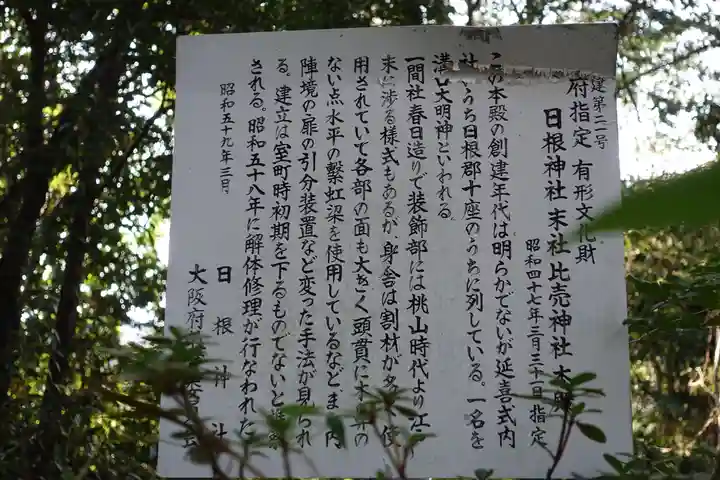 建第二一号
府指定 有形文化財
日根神社末社比売神社本殿
昭和四十七年三月三十一日指定
この本殿の創建年代は明らかでないが延喜式内
社のうち日根郡十座のうちに列している。一名を
溝口大明神といわれる。
一間社春日造りで装飾部には桃山時代より江
末に渉る様式もあるが身舎は割材が多 使
用されていて各部の面も大きく頭貫に木鼻の
ない点水平の繋虹梁を使用しているなどまた内
陣境の扉の引分装置など変った手法が見られ
る。建立は室町時初期を下るものでないと
される。昭和五十八年に解体修理が行なわれた
昭和五十九年三月
日根神社
大阪府教育委員会